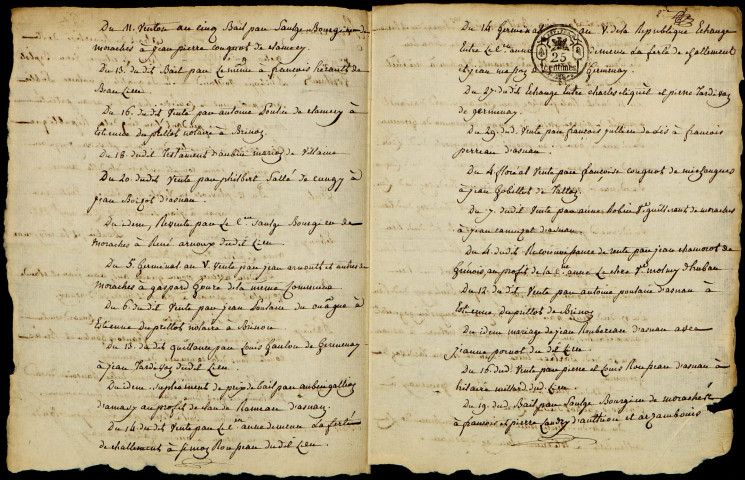 Du 11. Ventose an cinq Bail par Saulge Bourgeois de
moraches à Jean pierre conquot de Clamecy
Du 13. dudit Bail par Le même à francois herault de
Beau Lieu
Du 16. dudit Vente par antoine Soulie de Clamecy à
Etienne dupillot notaire à Brinon
Du 18. dudit Testament d'aubin mariez de Villaine
Du 20. dudit Vente par philbert Salle de Cungy à
Jean Boizot d'asnan
Du idem, Revente par Le Cen Saulge Bourgeois de
moraches à René arnoux dudit Lieu
Du 5. Germinal an V. Vente par jean arnoult et autres de
moraches à gaspard goure de la meme Commune
Du 6. dudit Vente par jean Soulaine du ouagne à
Etienne dupillot notaire à Brinon
Du 13. dudit quittance par Louis Gaulon de Germenay
à jean Tardivaz dudit Lieu
Du idem suplement de prix de bail par aubin galliez
d'asnan au profit de claude Rameau d'asnan
Du 14 dudit Vente par Le anne de La ferté
de challement à Simon Roupeau dudit Lieu
Du 14 Germinal an V de la Republique Echange
Entre Le Cen anne de La ferté de challement
et jean Germenay
25
centimes
Du 27. dudit Echange Entre charles cliquet et pierre Tardivaz
de germenay
Du 29. dud. Vente par francois jullien de Lis à francois
perreau d'asnan
Du 4 floréal Vente par francoise conquot de mézangues
à jean gobillot de Talley
Du 7. dudit Vente par anne Robin Ve guilleraut de moraches
à jean d'asnan
Du 4. dudit Reconnoissance de rente par jean chamorot de
Grenois au profit de la Cne anne Ve d'huban
Du 12. du dit Vente par antoine poulaine d'asnan à
Etienne dupillot de Brinon
Du idem mariage de jean Roubereau d'asnan avec
jeanne pornot du dit Lieu
Du 16. dud. Vente par pierre et Louis Roupeau d'asnan à
hilaire millerd dud. Lieu
Du 19. dud. Bail par Saulge Bourgeois de moraches
à francois et pierre Caudry d'anthien et